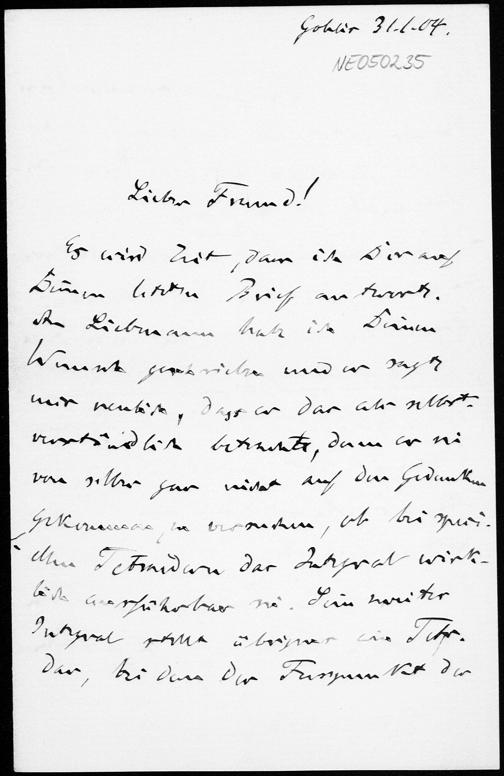 Gohlis 31.1.04.
NE050235
Lieber Freund!
Es wird Zeit, dass ich Dir auf
Deinen letzten Brief antworte.
An Liebmann hatte ich Deinen
Wunsch geschrieben und er sagte
mir neulich, dass er das als selbst-
verständlich betrachte, denn er sei
von selber gar nicht auf den Gedanken
gekommen zu versuchen, ob bei speci-
ellen Tetraedern das Integral wirk-
lich ausführbar sei. Sein zweites
Integral stellt übrigens ein Tetra-
der, bei dem der Fusspunkt der